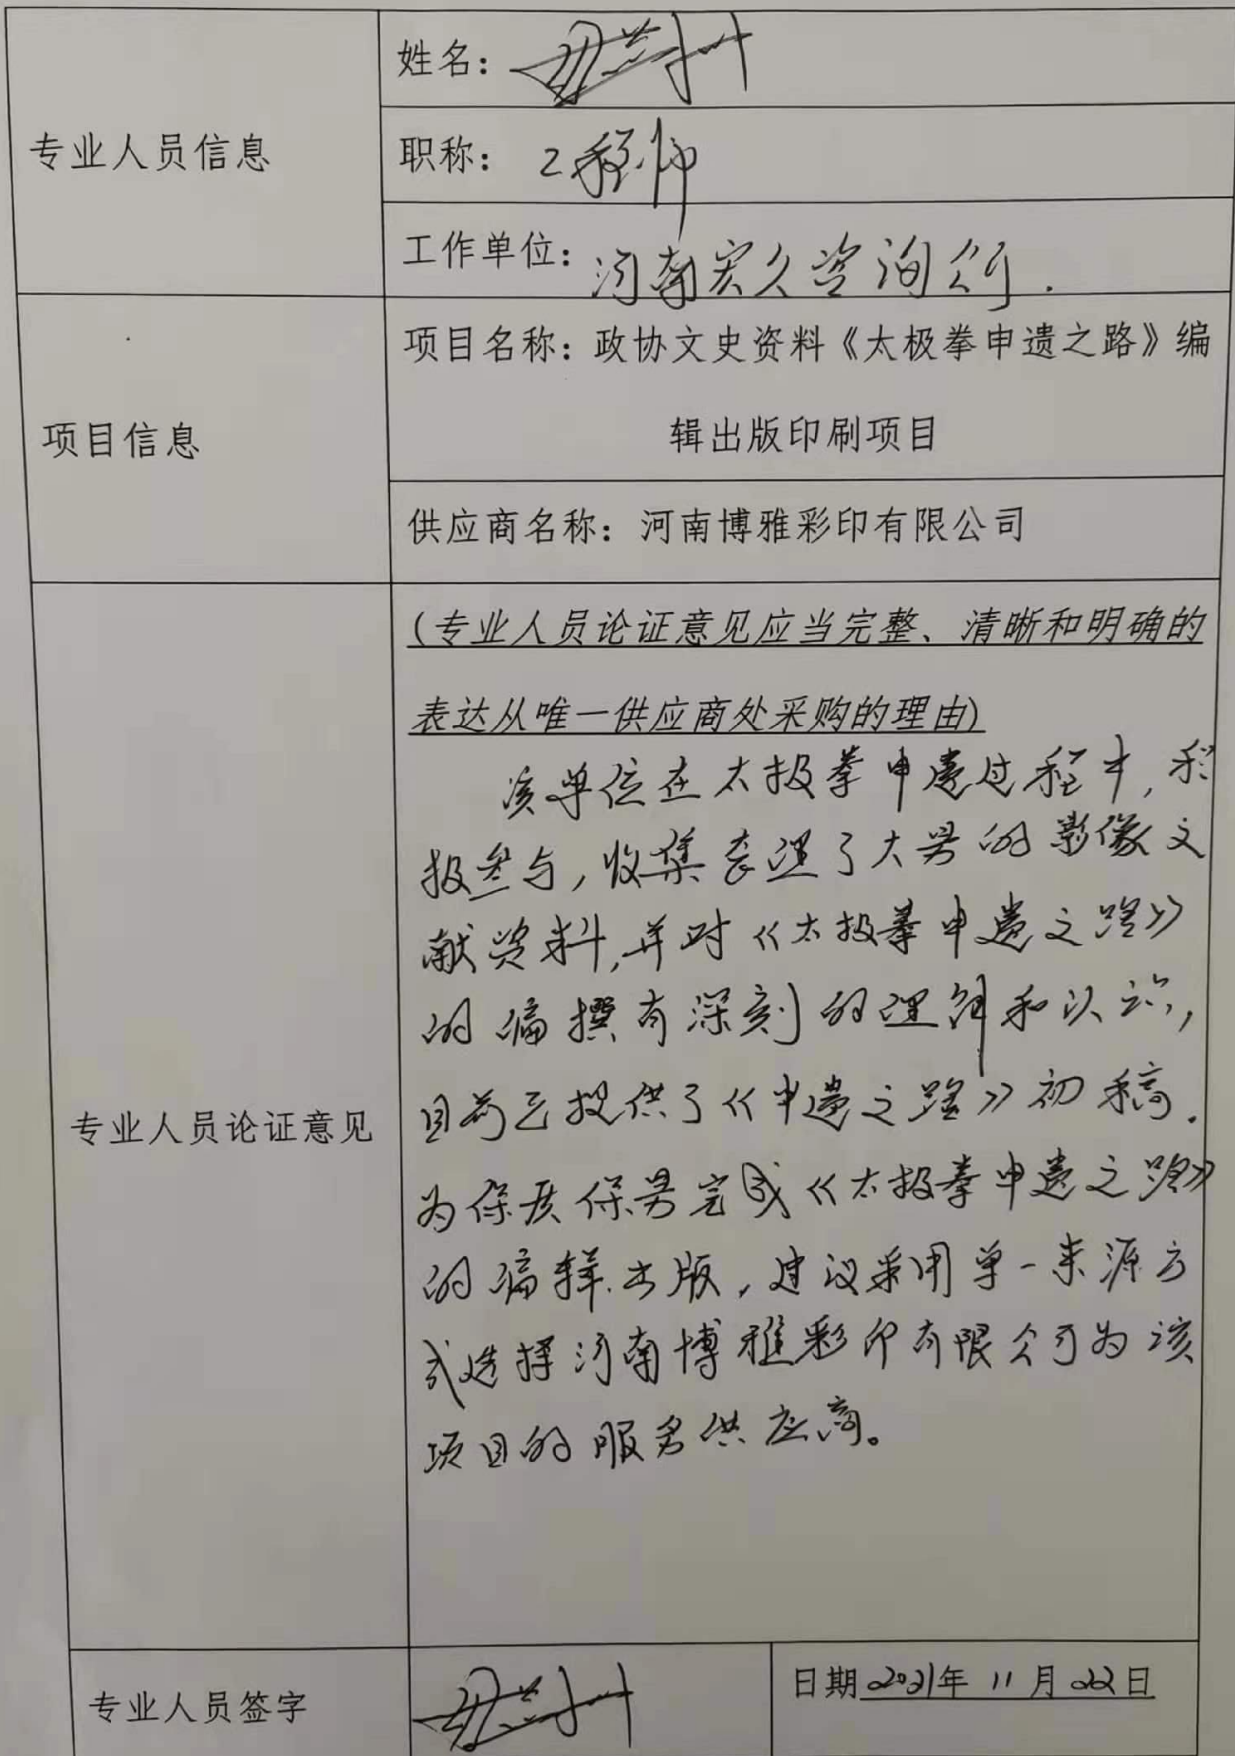 专业人员信息
姓名：
职称：工程师
工作单位：河南宏久咨询公司.
项目信息
项目名称：政协文史资料《太极拳申遗之路》编
辑出版印刷项目
供应商名称：河南博雅彩印有限公司
专业人员论证意见
(专业人员论证意见应当完整、清晰和明确的
表达从唯一供应商处采购的理由)
该单位在太极拳申遗过程中,积
极参与,收集整理了大量的影像文
献资料,并对《太极拳申遗之路》
的编撰有深刻的理解和认识,
目前已提供了《申遗之路》初稿.
为保质保量完成《太极拳申遗之路》
的编辑出版,建议采用单一来源方
式选择河南博雅彩印有限公司为该
项目的服务供应商。
专业人员签字
日期2021年11月22日